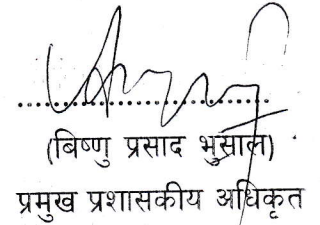 (बिष्णु प्रसाद भुसाल)
प्रमुख प्रशासकीय अधिकृत